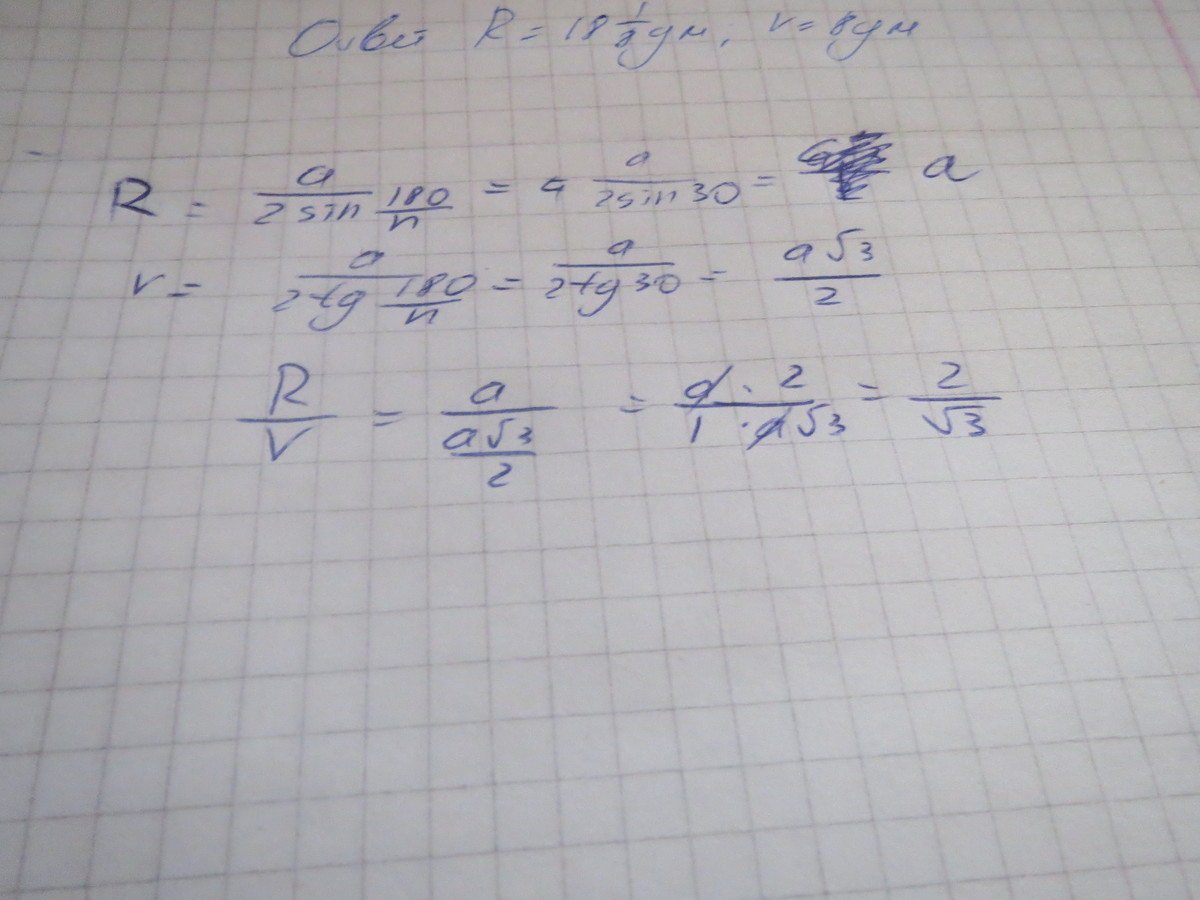 Ответ R = 18 1/8 дм, r = 8 дм
R = a / (2 sin 180/n) = a / (2 sin 30) = a
r = a / (2 tg 180/n) = a / (2 tg 30) = a√3 / 2
R / r = a / (a√3 / 2) = a · 2 / (1 · a√3) = 2 / √3